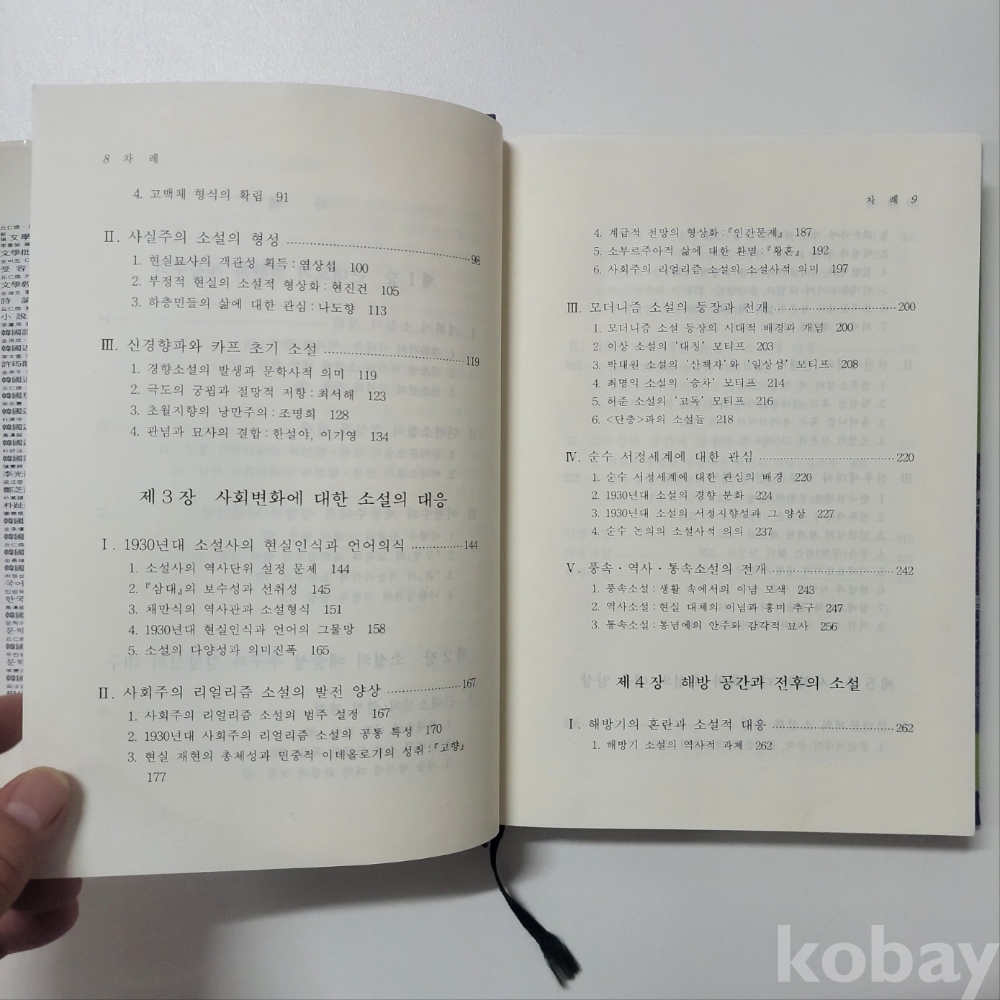 8 차 례
4. 고백체 형식의 확립 91
Ⅱ. 사실주의 소설의 형성 98
1. 현실묘사의 객관성 획득:염상섭 100
2. 부정적 현실의 소설적 형상화:현진건 105
3. 하층민들의 삶에 대한 관심:나도향 113
Ⅲ. 신경향파와 카프 초기 소설 119
1. 경향소설의 발생과 문학사적 의미 119
2. 극도의 궁핍과 절망적 저항:최서해 123
3. 초월지향의 낭만주의:조명희 128
4. 관념과 묘사의 결합:한설야, 이기영 134
제 3 장 사회변화에 대한 소설의 대응
Ⅰ. 1930년대 소설사의 현실인식과 언어의식 144
1. 소설사의 역사단위 설정 문제 144
2. 『삼대』의 보수성과 선취성 145
3. 채만식의 역사관과 소설형식 151
4. 1930년대 현실인식과 언어의 그물망 158
5. 소설의 다양성과 의미진폭 165
Ⅱ. 사회주의 리얼리즘 소설의 발전 양상 167
1. 사회주의 리얼리즘 소설의 범주 설정 167
2. 1930년대 사회주의 리얼리즘 소설의 공통 특성 170
3. 현실 재현의 총체성과 민중적 이데올로기의 성취:『고향』
177
차 례 9
4. 계급적 전망의 형상화:『인간문제』 187
5. 소부르주아적 삶에 대한 환멸:『황혼』 192
6. 사회주의 리얼리즘 소설의 소설사적 의미 197
Ⅲ. 모더니즘 소설의 등장과 전개 200
1. 모더니즘 소설 등장의 시대적 배경과 개념 200
2. 이상 소설의 '대칭' 모티프 203
3. 박태원 소설의 '산책자'와 '일상성' 모티프 208
4. 최명익 소설의 '승차' 모티프 214
5. 허준 소설의 '고독' 모티프 216
6. <단층>파의 소설들 218
Ⅳ. 순수 서정세계에 대한 관심 220
1. 순수 서정세계에 대한 관심의 배경 220
2. 1930년대 소설의 경향 분화 224
3. 1930년대 소설의 서정지향성과 그 양상 227
4. 순수 논의의 소설사적 의의 237
Ⅴ. 풍속·역사·통속소설의 전개 242
1. 풍속소설:생활 속에서의 이념 모색 243
2. 역사소설:현실 대체의 이념과 흥미 추구 247
3. 통속소설:통념에의 안주와 감각적 묘사 256
제 4 장 해방 공간과 전후의 소설
Ⅰ. 해방기의 혼란과 소설적 대응 262
1. 해방기 소설의 역사적 과제 262
kobay